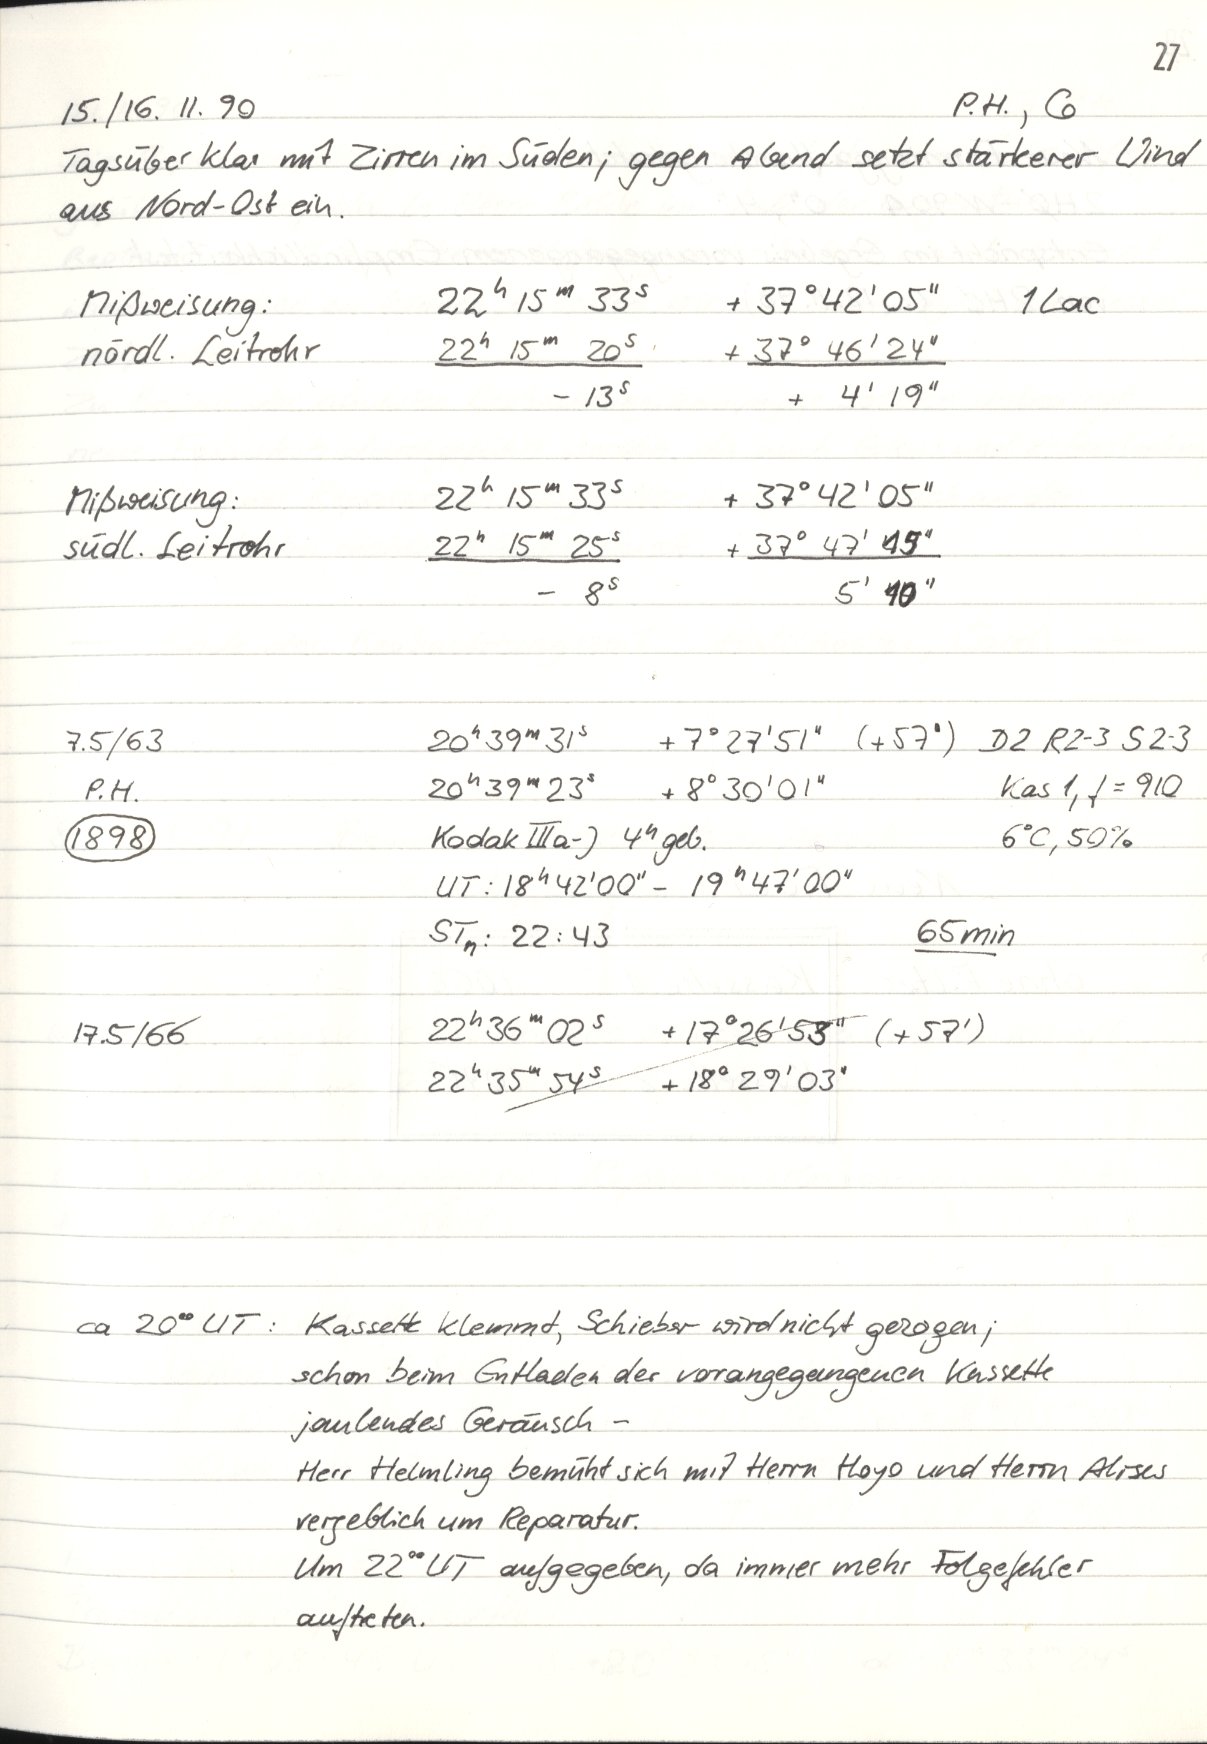 27
15./16. 11. 90 P.H., Co
Tagsüber klar mit Zirren im Süden; gegen Abend setzt stärkerer Wind
aus Nord-Ost ein.
Mißweisung: 22ʰ 15ᵐ 33ˢ + 37° 42' 05" 1 Lac
nördl. Leitrohr 22ʰ 15ᵐ 20ˢ + 37° 46' 24"
- 13ˢ + 4' 19"
Mißweisung: 22ʰ 15ᵐ 33ˢ + 37° 42' 05"
südl. Leitrohr 22ʰ 15ᵐ 25ˢ + 37° 47' 15"
- 8ˢ 5' 10"
7.5/63 20ʰ 39ᵐ 31ˢ + 7° 27' 51" (+57') D2 R2-3 S2-3
P.H. 20ʰ 39ᵐ 23ˢ + 8° 30' 01" Kas 1, f = 910
1898 Kodak IIIa-J 4ʰ geb. 6°C, 50%
UT: 18ʰ 42' 00" - 19ʰ 47' 00"
STₙ: 22:43 65 min
17.5/66 22ʰ 36ᵐ 02ˢ + 17° 26' 53" (+57')
22ʰ 35ᵐ 54ˢ + 18° 29' 03"
ca 20⁰⁰ UT: Kassette klemmt, Schieber wird nicht gezogen;
schon beim Entladen der vorangegangenen Kassette
jaulendes Geräusch -
Herr Helmling bemüht sich mit Herrn Hoyo und Herrn Alises
vergeblich um Reparatur.
Um 22⁰⁰ UT aufgegeben, da immer mehr Folgefehler
auftreten.